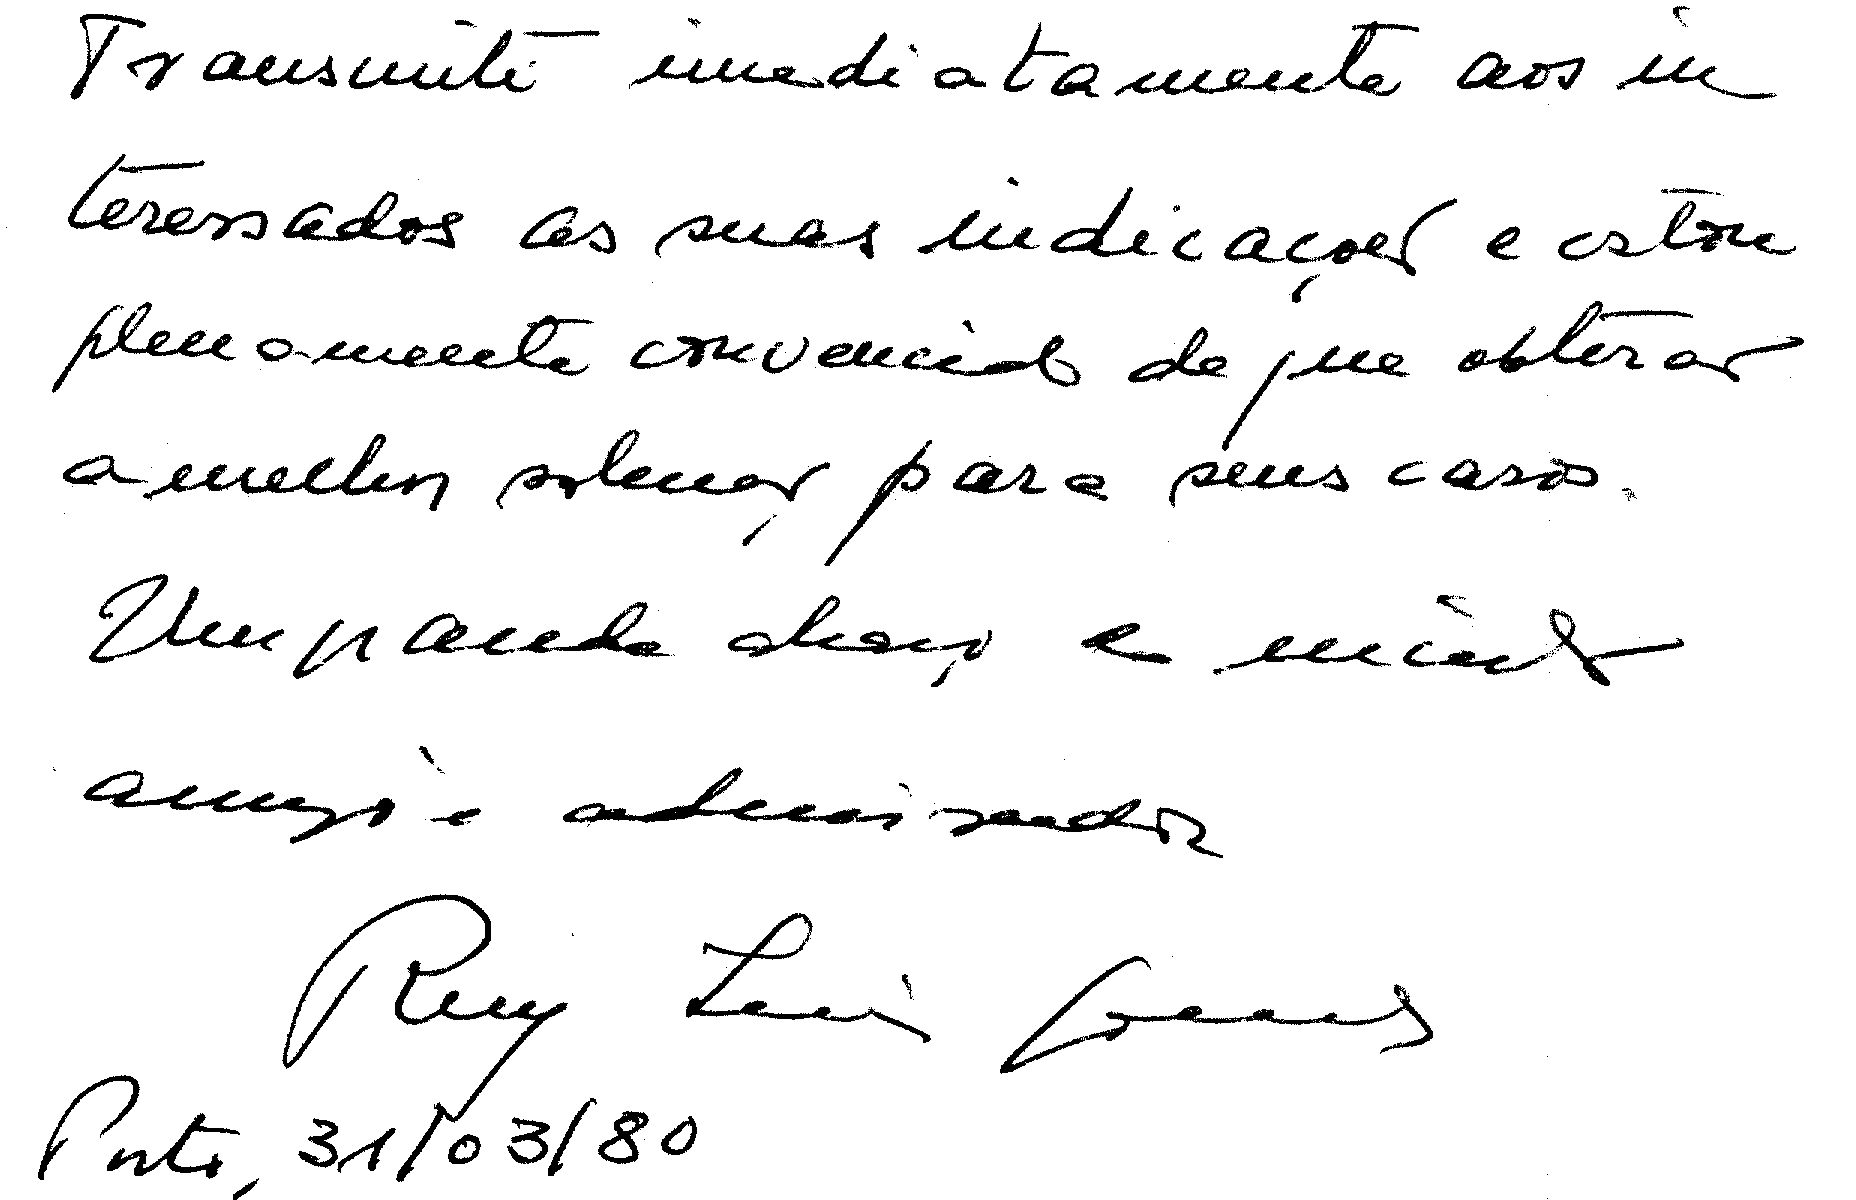 Transmiti imediatamente aos in
teressados as suas indicações e estou
plenamente convencido de que obterão
a melhor solução para seus casos.
Um grande abraço e
amigo e admirador
Ruy Luís Gomes
Porto, 31/03/80